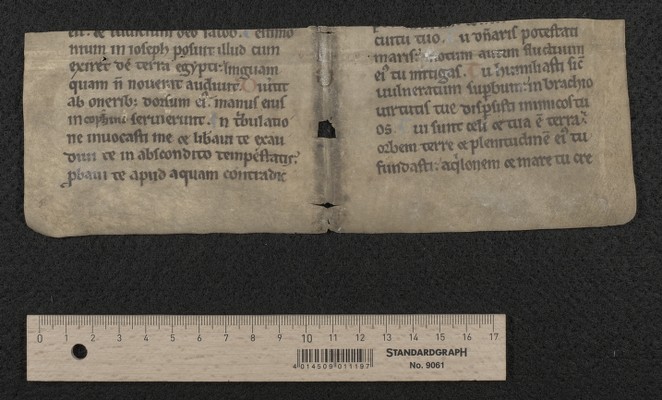 est. & iudicium deo iacob. Testimo
nium in ioseph posuit illud cum
exiret de terra egypti: linguam
quam n̄ nouerat audiuit. Diuertit
ab onerib; dorsum ei: manus eius
in cophino seruierunt. In tbulatio
ne inuocasti me & libaui te exau
diui te in abscondito tempestatis:
pbaui te apud aquam contradic
cuitu tuo. Tu dn̄aris potestati
maris: motum autem fluctuum
ei tu mitigas. Tu humiliasti sic̄
uulneratum supbum: in brachio
uirtutis tue dispsisti inimicos tu
os. Tui sunt celi & tua ē terra:
orbem terre & plenitudinē ei tu
fundasti: aqlonem & mare tu cre
0 1 2 3 4 5 6 7 8 9 10 11 12 13 14 15 16 17
STANDARDGRAPH
No. 9061
4 014509 011197